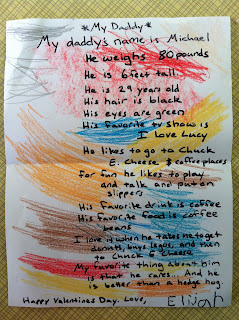 *My Daddy*
My daddy's name is Michael
He weighs 80 pounds
He is 6 feet tall
He is 29 years old
His hair is black
His eyes are green
His favorite tv show is
I love Lucy
He likes to go to Chuck
E. Cheese & coffee places
for fun he likes to play
and talk and put on
slippers
His favorite drink is coffee
His favorite food is coffee
beans
I love it when he takes me to get
donuts, buys legos, and then
to Chuck E Cheese
My favorite thing about him
is that he cares.. And he
is better than a hedge hog.
Happy Valentines Day. Love,
Elijah